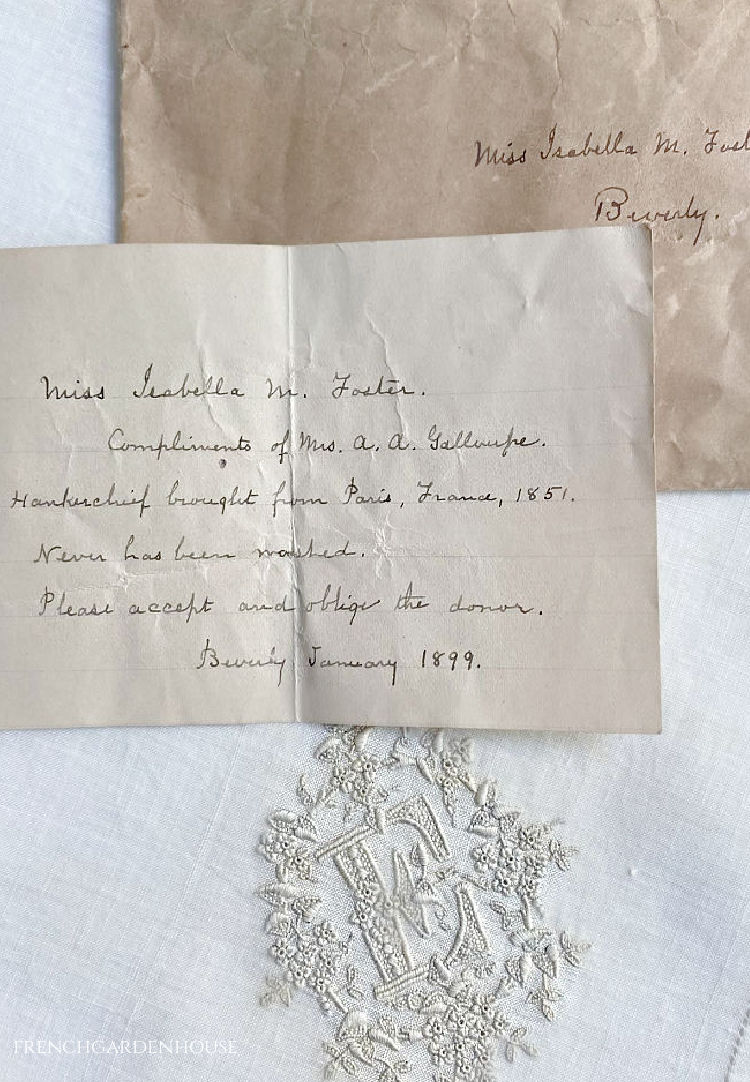 Miss Isabella M. Fost
Beverly.
Miss Isabella M. Foster.
Compliments of Mrs. A. A. Galloupe.
Hankerchief brought from Paris, France, 1851.
Never has been washed.
Please accept and oblige the donor.
Beverly January 1899.
FRENCHGARDENHOUSE